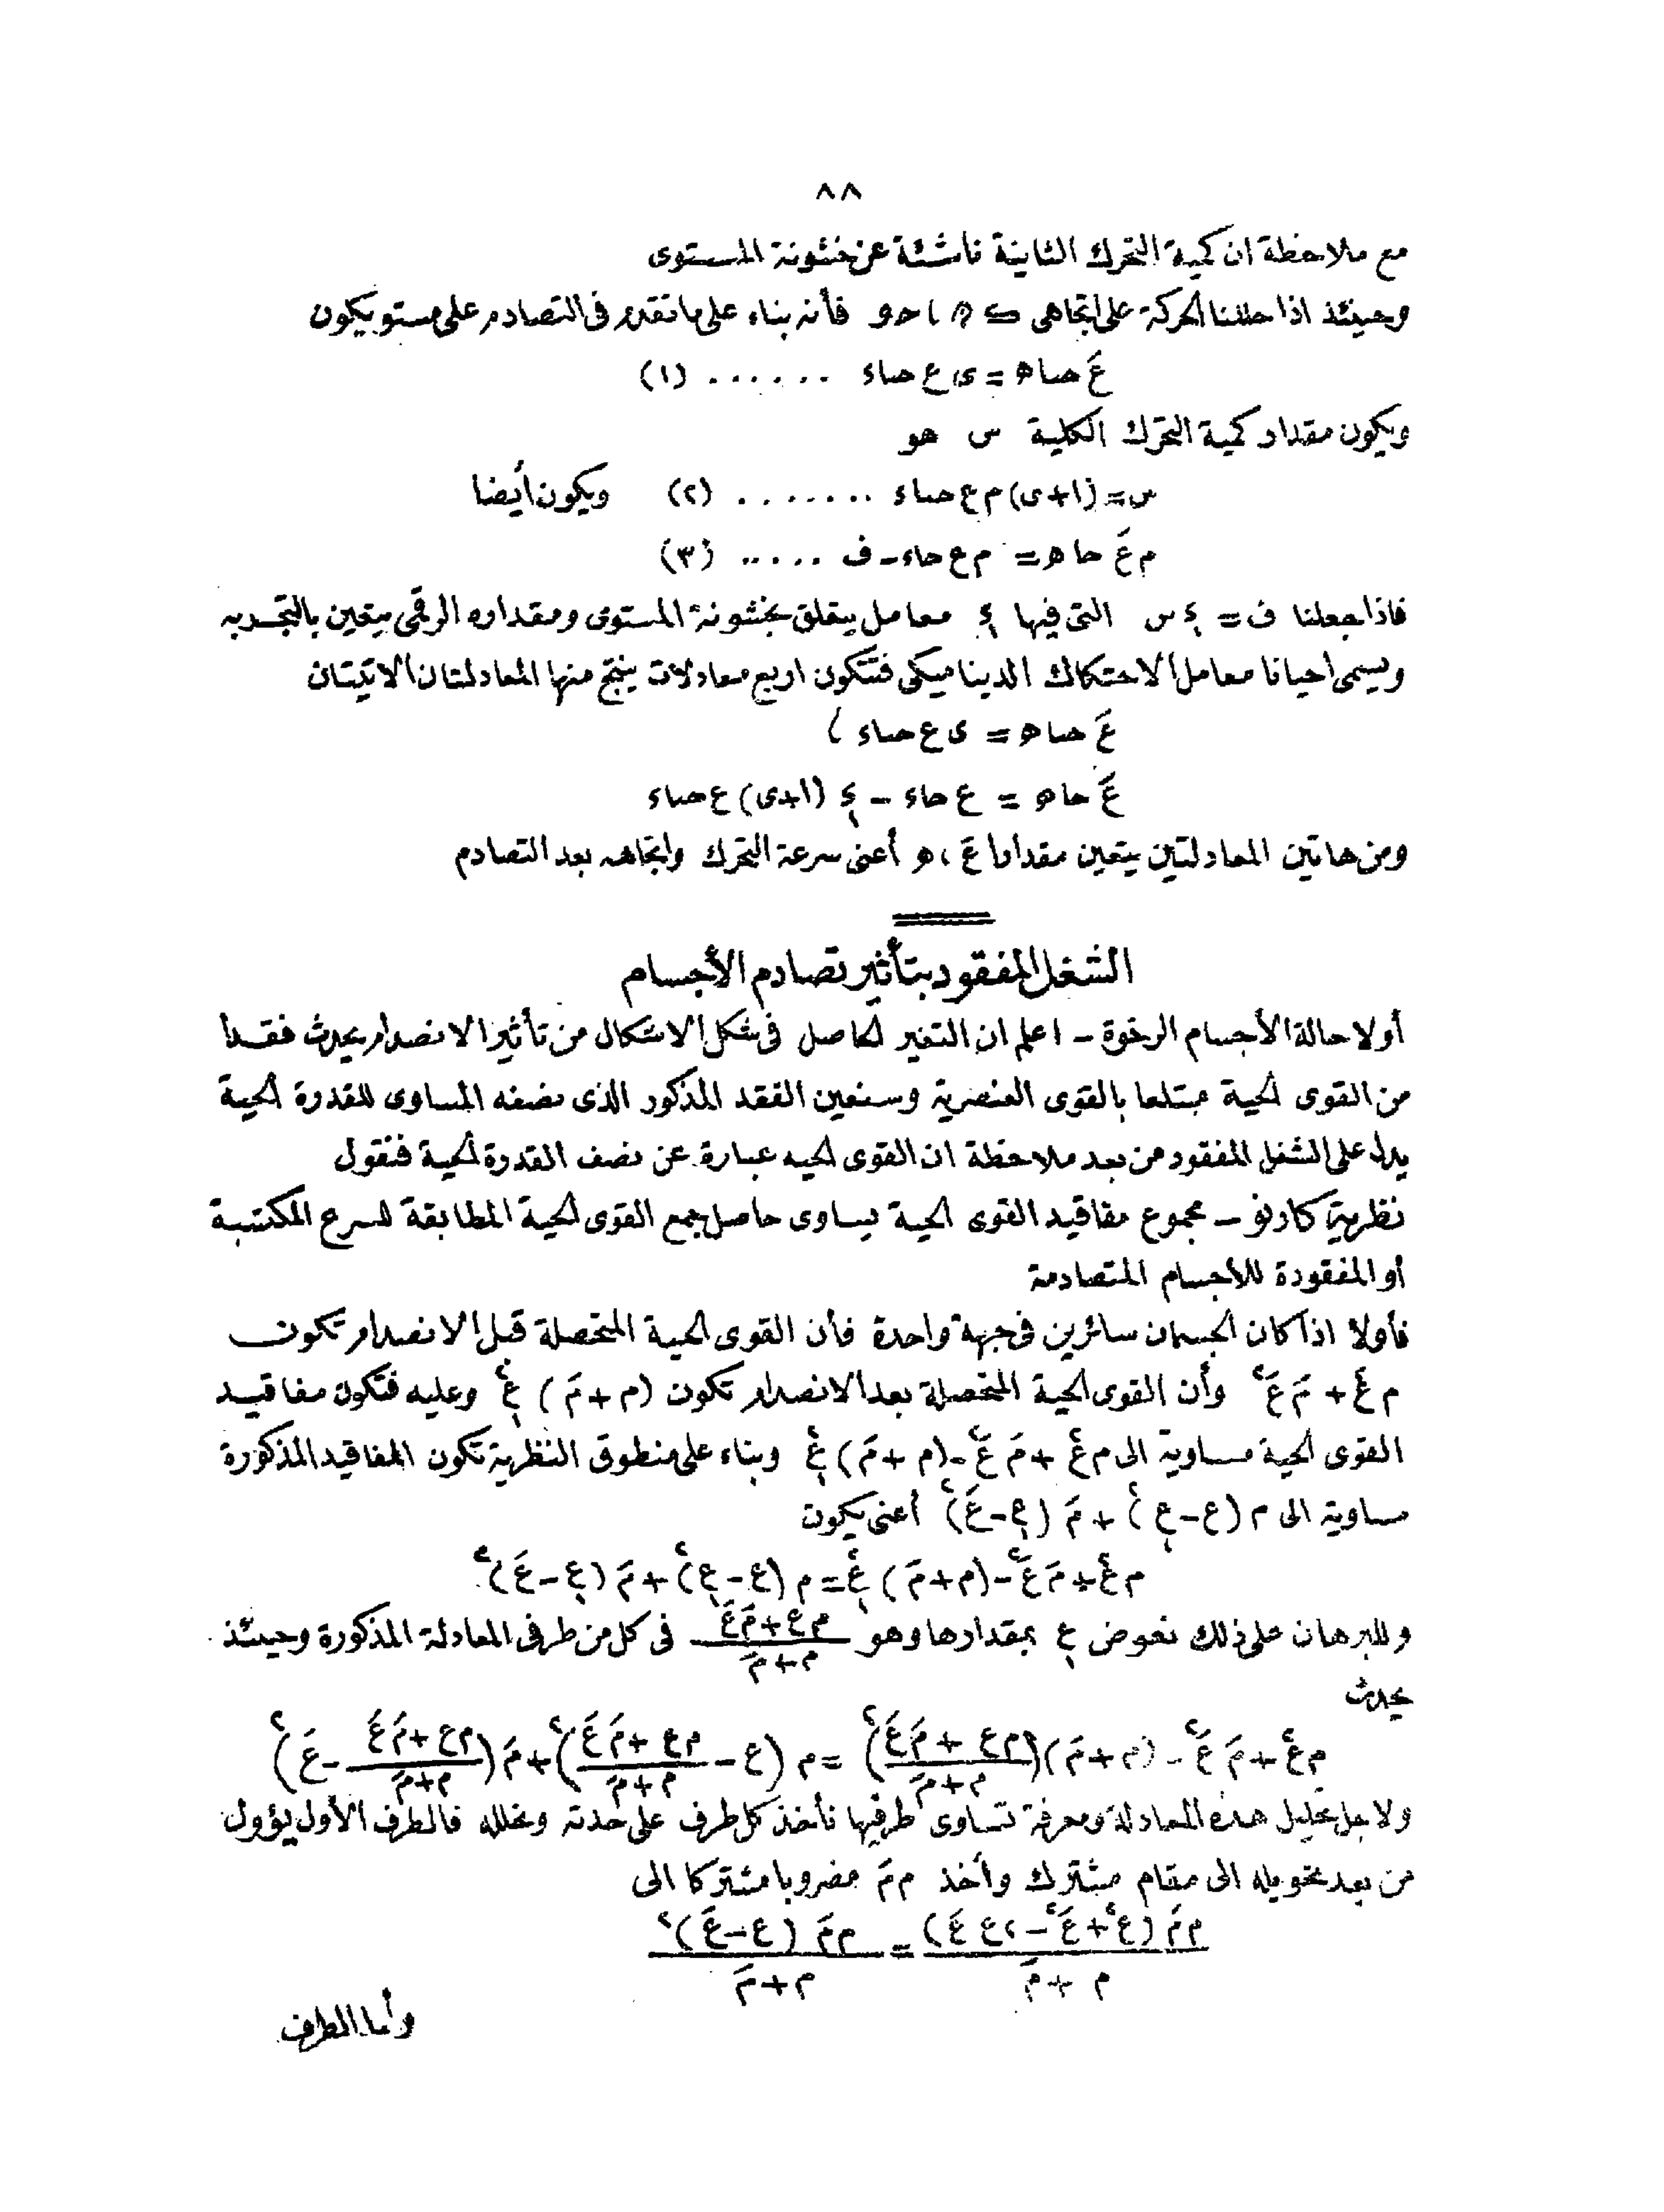 ٨٨
مع ملاحظة ان كمية التحرك الثانية ناشئة عن خشونة المستوى
وحينئذ اذا حللنا الحركة على اتجاهى فأنه بناء على ما تقدم فى التصادم على مستو يكون
عَ حتا ه = ى ع حتا ء ...... (١)
ويكون مقدار كمية التحرك الكلية س هو
س = (١+ى) م ع حتا ء ....... (٢) ويكون أيضا
م عَ حا ه = م ع حا ء - ف ..... (٣)
فاذا جعلنا ف = س التى فيها معامل يتعلق بخشونة المستوى ومقداره الرقمى يتعين بالتجربه
ويسمى احيانا معامل الاحتكاك الديناميكى فتتكون اربع معادلات ينتج منها المعادلتان الاتيتان
عَ حتا ه = ى ع حتا ء
عَ حا ه = ع حا ء - (١+ى) ع حتا ء
ومن هاتين المعادلتين يتعين مقدارا عَ ، ه أعنى سرعة التحرك واتجاهه بعد التصادم
الشغل المفقود بتأثير تصادم الأجسام
أولا حالة الأجسام الرخوة - اعلم ان التغير الحاصل فى شكل الاشكال من تأثير الانصدام يحدث فقدا
من القوى الحية مبتلعا بالقوى العنصرية وسنعين الفقد المذكور الذى نصفه المساوى للقدرة الحية
يدل على الشغل المفقود من بعد ملاحظة ان القوى الحيه عبارة عن نصف القدرة الحية فنقول
نظرية كارنو - مجموع مفاقيد القوى الحية يساوى حاصل جمع القوى الحية المطابقة للسرع المكتسبة
أو المفقودة للأجسام المتصادمة
فأولا اذا كان الجسمان سائرين فى جهة واحدة فأن القوى الحية المتحصلة قبل الانصدام تكون
م ع٢ + مَ عَ٢ وأن القوى الحية المتحصلة بعد الانصدام تكون (م + مَ) ع١٢ وعليه فتكون مفاقيد
القوى الحية مساوية الى م ع٢ + مَ عَ٢ - (م + مَ) ع١٢ وبناء على منطوق النظرية تكون المفاقيد المذكورة
مساوية الى م (ع - ع١)٢ + مَ (ع١ - عَ)٢ أعنى يكون
م ع٢ + مَ عَ٢ - (م + مَ) ع١٢ = م (ع - ع١)٢ + مَ (ع١ - عَ)٢
وللبرهان على ذلك نعوض ع١ بمقدارها وهو (م ع + مَ عَ)/(م + مَ) فى كل من طرفى المعادلة المذكورة وحينئذ
يحدث
م ع٢ + مَ عَ٢ - (م + مَ)((م ع + مَ عَ)/(م + مَ))٢ = م (ع - (م ع + مَ عَ)/(م + مَ))٢ + مَ ((م ع + مَ عَ)/(م + مَ) - عَ)٢
ولاجل تحليل هذه المعادلة ومعرفة تساوى طرفيها نأخذ كل طرف على حدته ونحلله فالطرف الأول يؤول
من بعد تحويله الى مقام مشترك وأخذ م مَ مضروبا مشتركا الى
م مَ (ع٢ + عَ٢ - ٢ ع عَ)/(م + مَ) = م مَ (ع - عَ)٢/(م + مَ)
وأما الطرف